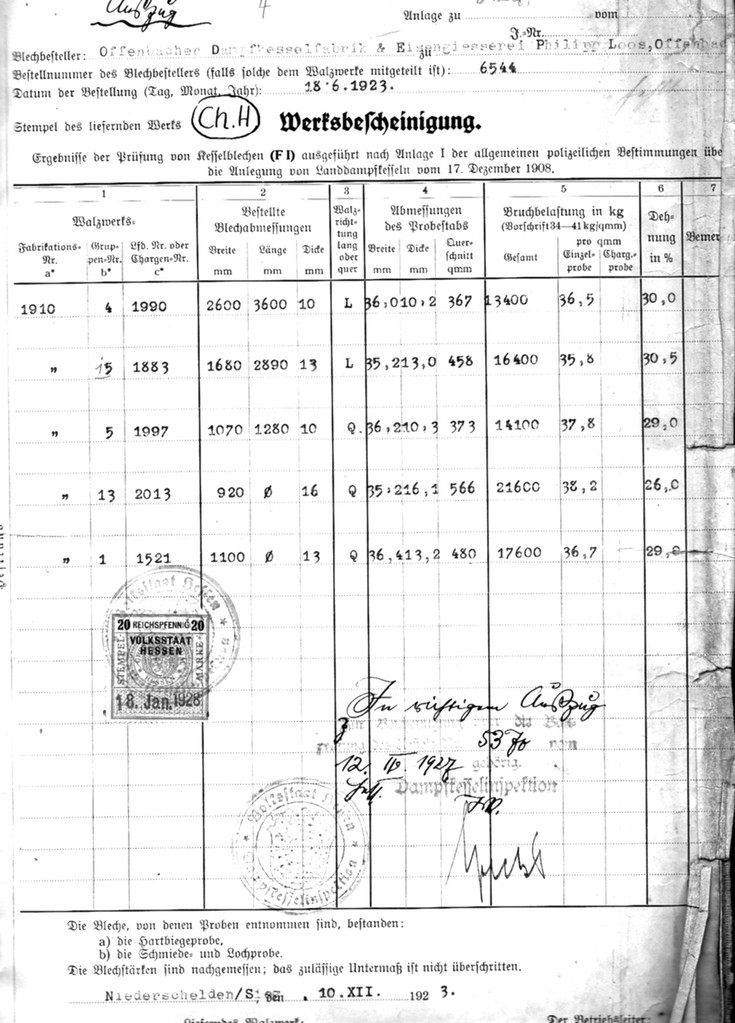 Auszug 4
Anlage zu vom
J.-Nr.
Blechbesteller: Offenbacher Dampfkesselfabrik & Eisengiesserei Philipp Loos, Offenbac
zu
Bestellnummer des Blechbestellers (falls solche dem Walzwerke mitgeteilt ist): 6544
Datum der Bestellung (Tag, Monat, Jahr): 18.6.1923.
Stempel des liefernden Werks Ch.H Werksbescheinigung.
Ergebnisse der Prüfung von Kesselblechen (F I) ausgeführt nach Anlage I der allgemeinen polizeilichen Bestimmungen übe
die Anlegung von Landdampfkesseln vom 17. Dezember 1908.
1 2 3 4 5 6 7
Walzwerks- Bestellte Blechabmessungen Walz-richt-tung lang oder quer Abmessungen des Probestabs Bruchbelastung in kg (Vorschrift 34—41 kg/qmm) Deh-nung in % Bemer
Fabrikations-Nr. a* Grup-pen-Nr. b* Lfd. Nr. oder Chargen-Nr. c* Breite mm Länge mm Dicke mm Breite mm Dicke mm Quer-schnitt qmm Gesamt pro qmm Einzel-probe Charg.-probe
1910 4 1990 2600 3600 10 L 36,0 10,2 367 13400 36,5 30,0
" 15 1883 1680 2890 13 L 35,2 13,0 458 16400 35,8 30,5
" 5 1997 1070 1280 10 Q. 36,2 10,3 373 14100 37,8 29,0
" 13 2013 920 Ø 16 Q 35,2 16,1 566 21600 38,2 26,0
" 1 1521 1100 Ø 13 Q 36,4 13,2 480 17600 36,7 29,0
Volksstaat Hessen
20 REICHSPFENNIG 20
VOLKSSTAAT
HESSEN
STEMPEL- MARKE
18. Jan. 1928
In richtigem Auszug
die
53 vom
12. IV. 1927 gehörig.
Dampfkesselinspektion
I.V.
Volksstaat Hessen
Dampfkesselinspektion
Die Bleche, von denen Proben entnommen sind, bestanden:
a) die Hartbiegeprobe,
b) die Schmiede- und Lochprobe.
Die Blechstärken sind nachgemessen; das zulässige Untermaß ist nicht überschritten.
Niederschelden/Sieg den 10.XII. 1923.
Lieferndes Walzwerk: Der Betriebsleiter: